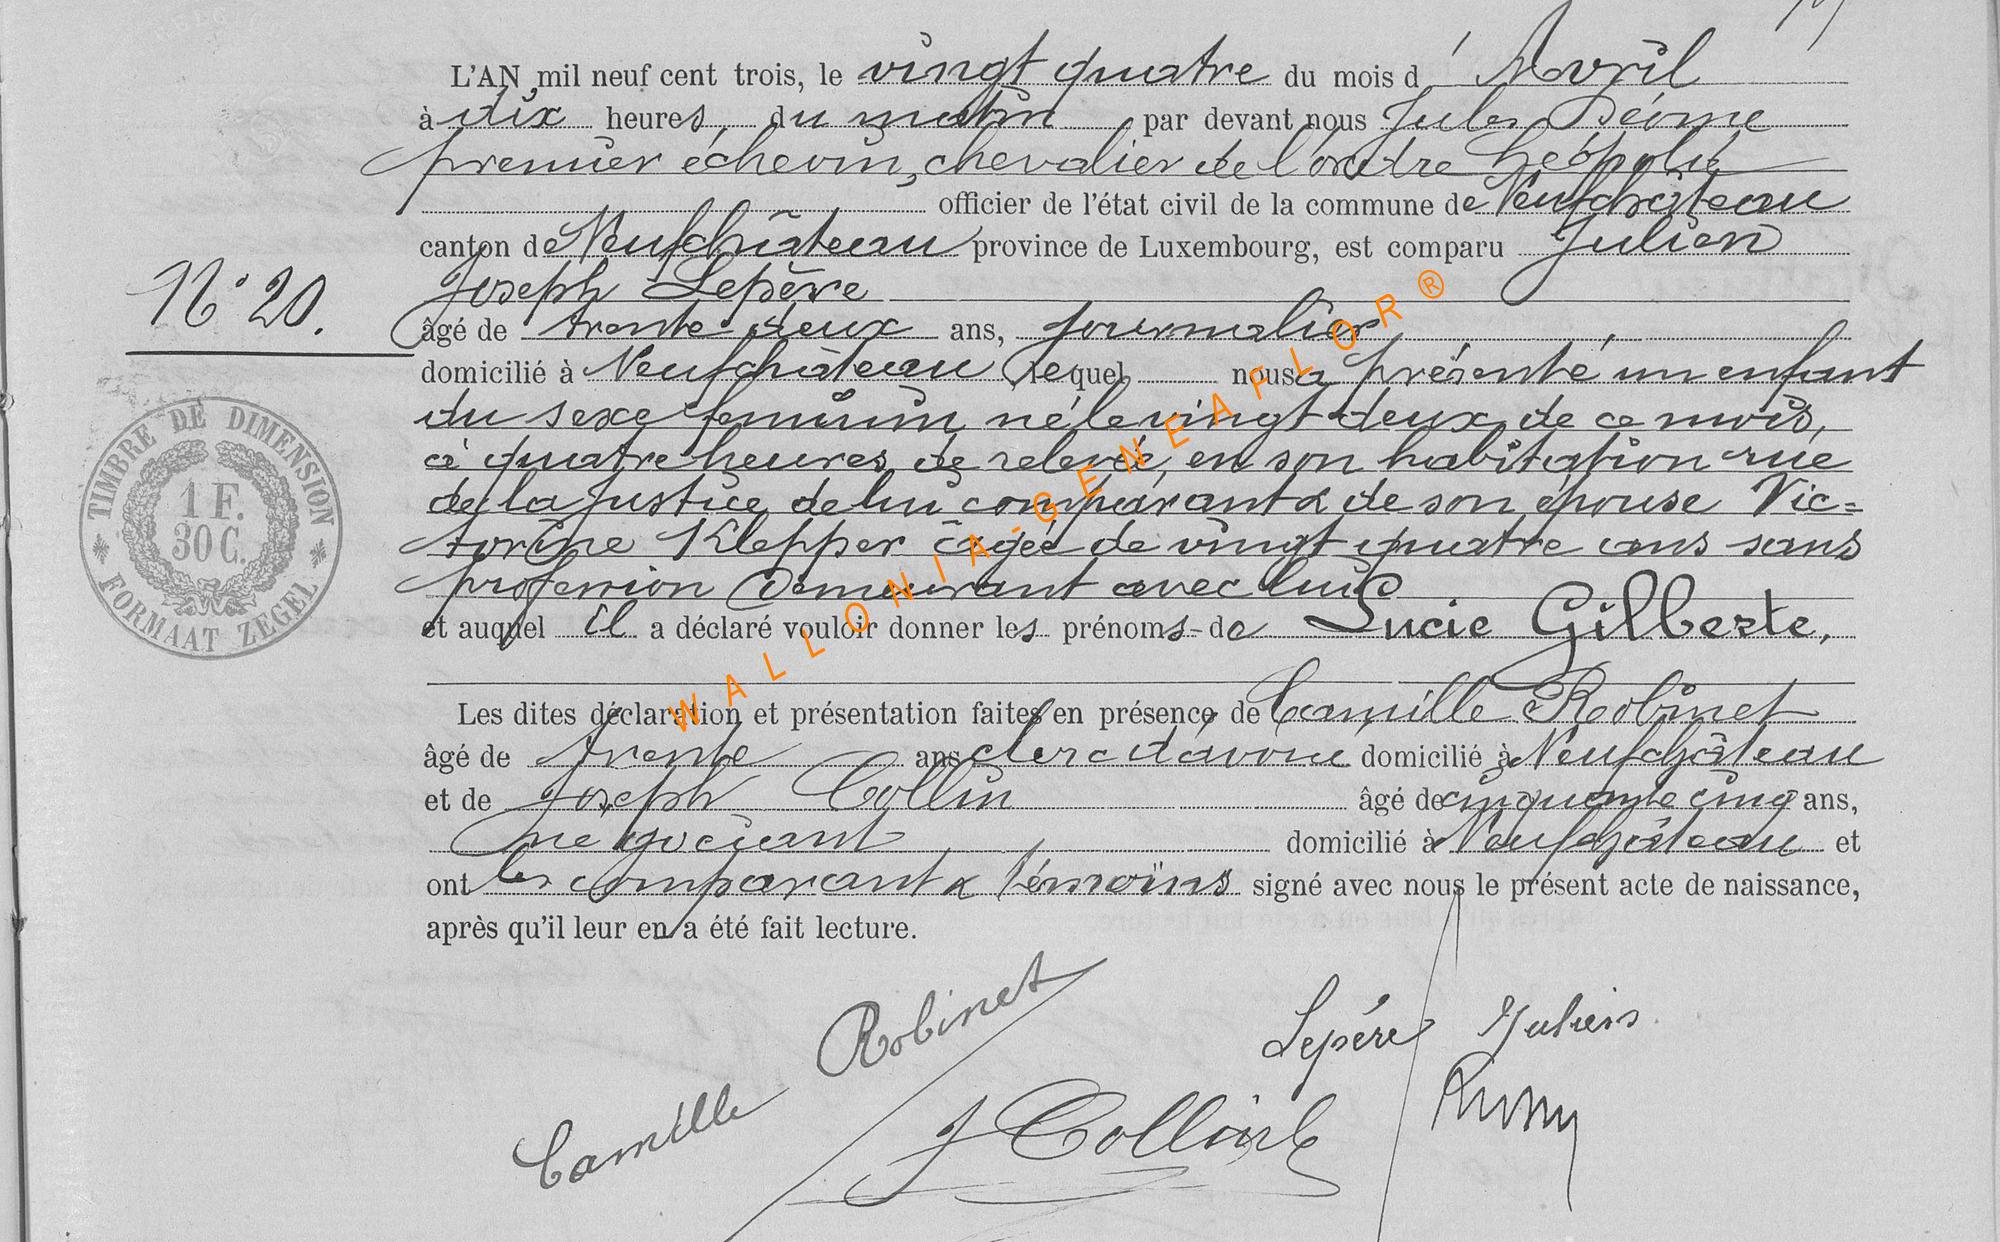 L'AN mil neuf cent trois, le vingt quatre du mois d'Avril
à dix heures, du matin par devant nous Jules Déome
premier échevin, chevalier de l'ordre Léopold
officier de l'état civil de la commune de Neufchâteau
canton de Neufchâteau province de Luxembourg, est comparu Julien
Joseph Lepère
N° 20.
âgé de trente deux ans, journalier
domicilié à Neufchâteau, lequel nous a présenté un enfant
du sexe féminin né le vingt deux de ce mois,
à quatre heures de relevée, en son habitation rue
de la Justice de lui comparant & de son épouse Vic=
torine Klepper âgée de vingt quatre ans sans
profession demeurant avec lui
et auquel il a déclaré vouloir donner les prénoms de Lucie Gilberte,
Les dites déclaration et présentation faites en présence de Camille Robinet
âgé de trente ans clerc d'avoué domicilié à Neufchâteau
et de Joseph Collin âgé de cinquante cinq ans,
négociant domicilié à Neufchâteau et
ont les comparant & témoins signé avec nous le présent acte de naissance,
après qu'il leur en a été fait lecture.
Camille Robinet
Lepère Julien
J Collin
TIMBRE DE DIMENSION
1 F.
30 C.
FORMAAT ZEGEL
WALLONIA-GENEAPLOR®